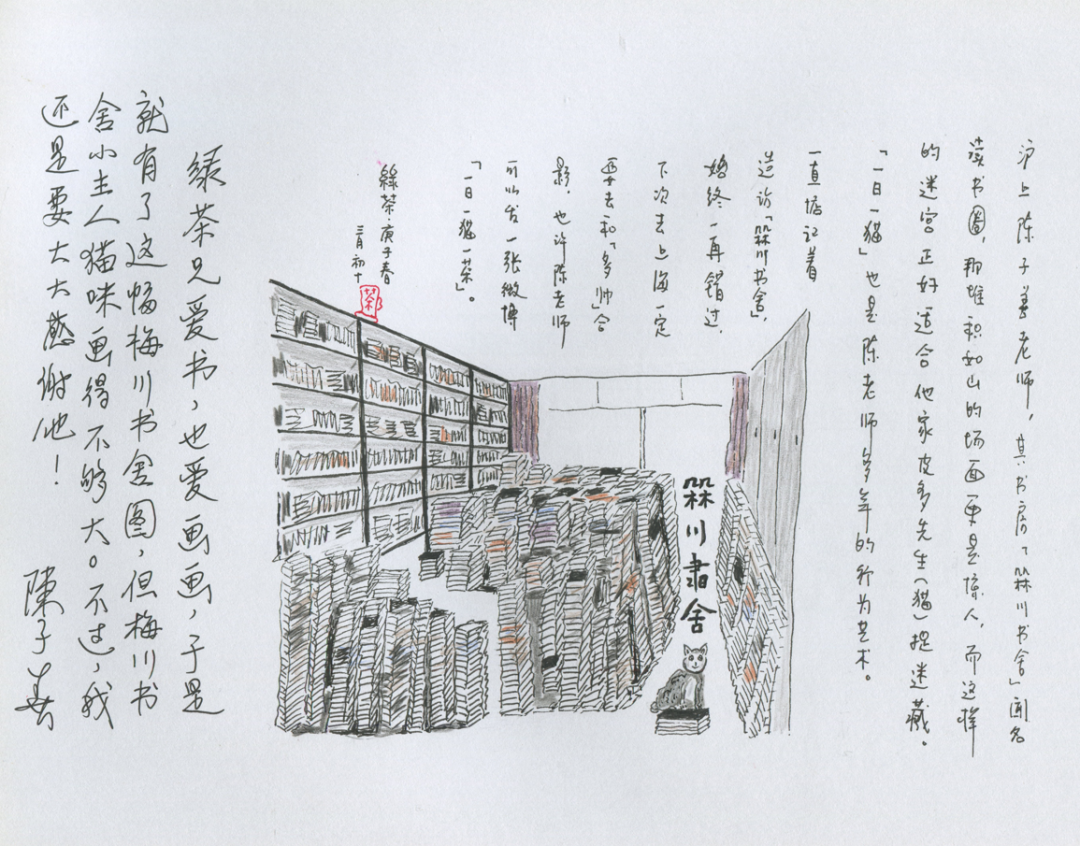 沪上陈子善老师,其书房「槑川书舍」闻名
读书圈,那堆积如山的场面更是惊人,而这样
的迷宫正好适合他家皮多先生(猫)捉迷藏。
「一日一猫」也是陈老师多年的行为艺术。
一直惦记着
造访「槑川书舍」,
始终一再错过,
下次去上海一定
要去和「多帅」合
影,也许陈老师
可以发一张微博
「一日一猫一茶」。
綠茶·庚子春
三月初十
茶
槑川書舍
绿茶兄爱书,也爱画画,于是
就有了这幅梅川书舍图,但梅川书
舍小主人猫咪画得不够大。不过,我
还是要大大感谢他!
陳子善